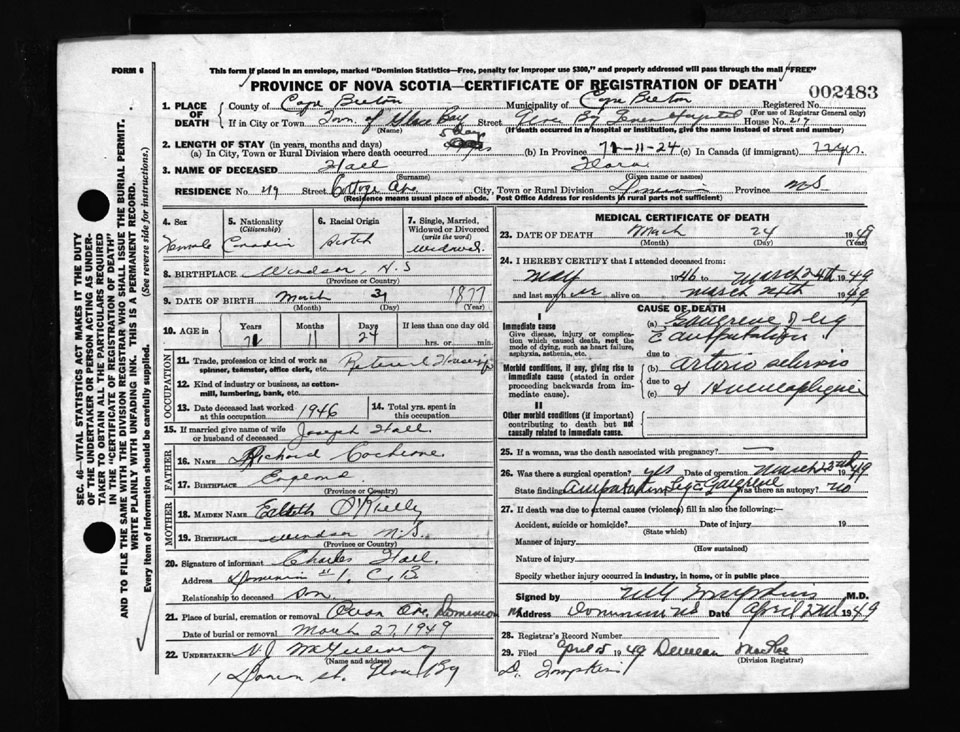 FORM 6
This form if placed in an envelope, marked "Dominion Statistics—Free, penalty for improper use $300," and properly addressed will pass through the mail "FREE"
PROVINCE OF NOVA SCOTIA—CERTIFICATE OF REGISTRATION OF DEATH
002483
1. PLACE OF DEATH County of Cape Breton Municipality of Cape Breton Registered No.
(For use of Registrar General only)
If in City or Town Town of Glace Bay Street House No. 219
(Name) (If death occurred in a hospital or institution, give the name instead of street and number)
2. LENGTH OF STAY (in years, months and days) 5 days
(a) In City, Town or Rural Division where death occurred (b) In Province 71-11-24 (c) In Canada (if immigrant) 72 yrs.
3. NAME OF DECEASED Hall Flora
(Surname) (Given name or names)
RESIDENCE No. 219 Street Cottage Ave City, Town or Rural Division Province N.S
(Residence means usual place of abode. Post Office Address for residents in rural parts not sufficient)
4. Sex 5. Nationality (Citizenship) 6. Racial Origin 7. Single, Married, Widowed or Divorced (write the word)
Female Scotch Widowed
8. BIRTHPLACE Windsor, N.S
(Province or Country)
9. DATE OF BIRTH March 31 1877
(Month) (Day) (Year)
10. AGE in Years Months Days If less than one day old
71 11 24 hrs. or min.
OCCUPATION
11. Trade, profession or kind of work as spinner, teamster, office clerk, etc.
12. Kind of industry or business, as cotton-mill, lumbering, bank, etc.
13. Date deceased last worked at this occupation 1946 14. Total yrs. spent in this occupation
15. If married give name of wife or husband of deceased Joseph Hall.
FATHER
16. Name Richard Cochrane
17. Birthplace
(Province or Country)
MOTHER
18. Maiden Name O'Kelly
19. Birthplace Windsor N.S.
(Province or Country)
20. Signature of informant Charles Hall.
Address C.B
Relationship to deceased Son.
21. Place of burial, cremation or removal Dominion
Date of burial or removal March 27, 1949
22. UNDERTAKER
(Name and address)
MEDICAL CERTIFICATE OF DEATH
23. DATE OF DEATH March 24 1949
(Month) (Day) (Year)
24. I HEREBY CERTIFY that I attended deceased from:
May 1946 to March 24th 1949
and last saw her alive on March 24th 1949
CAUSE OF DEATH
I
Immediate cause
Give disease, injury or complication which caused death, not the mode of dying, such as heart failure, asphyxia, asthenia, etc.
(a) Gangrene of leg
c amputation
due to
Morbid conditions, if any, giving rise to immediate cause (stated in order proceeding backwards from immediate cause).
(b) Arterio sclerosis
due to
(c)
II
Other morbid conditions (if important) contributing to death but not causally related to immediate cause.
25. If a woman, was the death associated with pregnancy? —
26. Was there a surgical operation? yes Date of operation March 23rd 1949
State finding Amputation Leg c Gangrene Was there an autopsy? no
27. If death was due to external causes (violence) fill in also the following:—
Accident, suicide or homicide? Date of injury 19
(State which)
Manner of injury
(How sustained)
Nature of injury
Specify whether injury occurred in industry, in home, or in public place
Signed by M.D.
Address Dominion N.S Date April 2nd 1949
28. Registrar's Record Number
29. Filed April 5 1949
(Division Registrar)
D. Tompkins
SEC. 46—VITAL STATISTICS ACT MAKES IT THE DUTY OF THE UNDERTAKER OR PERSON ACTING AS UNDERTAKER TO OBTAIN ALL THE PARTICULARS REQUIRED IN THE "CERTIFICATE OF REGISTRATION OF DEATH" AND TO FILE THE SAME WITH THE DIVISION REGISTRAR WHO SHALL ISSUE THE BURIAL PERMIT.
WRITE PLAINLY WITH UNFADING INK. THIS IS A PERMANENT RECORD.
Every item of information should be carefully supplied. (See reverse side for instructions.)